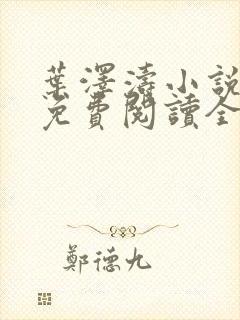 葉澤濤小說
免費閱讀全
鄭德九